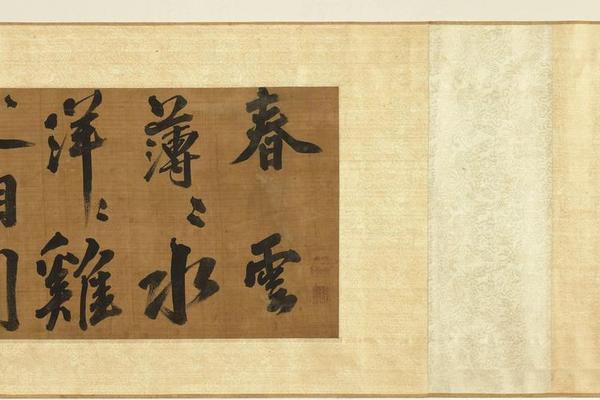 春雲
薄〻水
洋〻雞